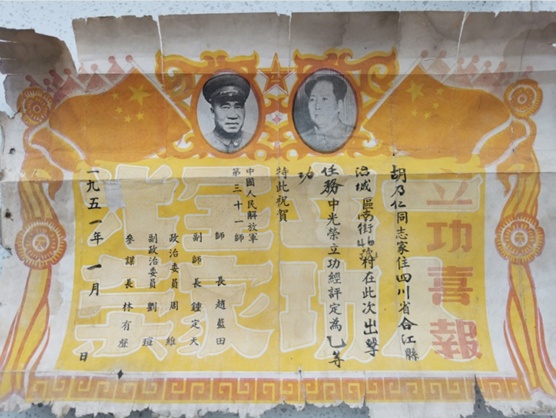 立功喜報
胡乃仁同志家住四川省合江縣
治城區南街村在此次出擊
任務中光榮立功經評定為乙等
功
特此祝賀
中國人民解放軍
第三十一師
師長趙藍田
副師長鍾定天
政治委員周維
副政治委員劉瑄
參謀長林有聲
一九五一年一月日